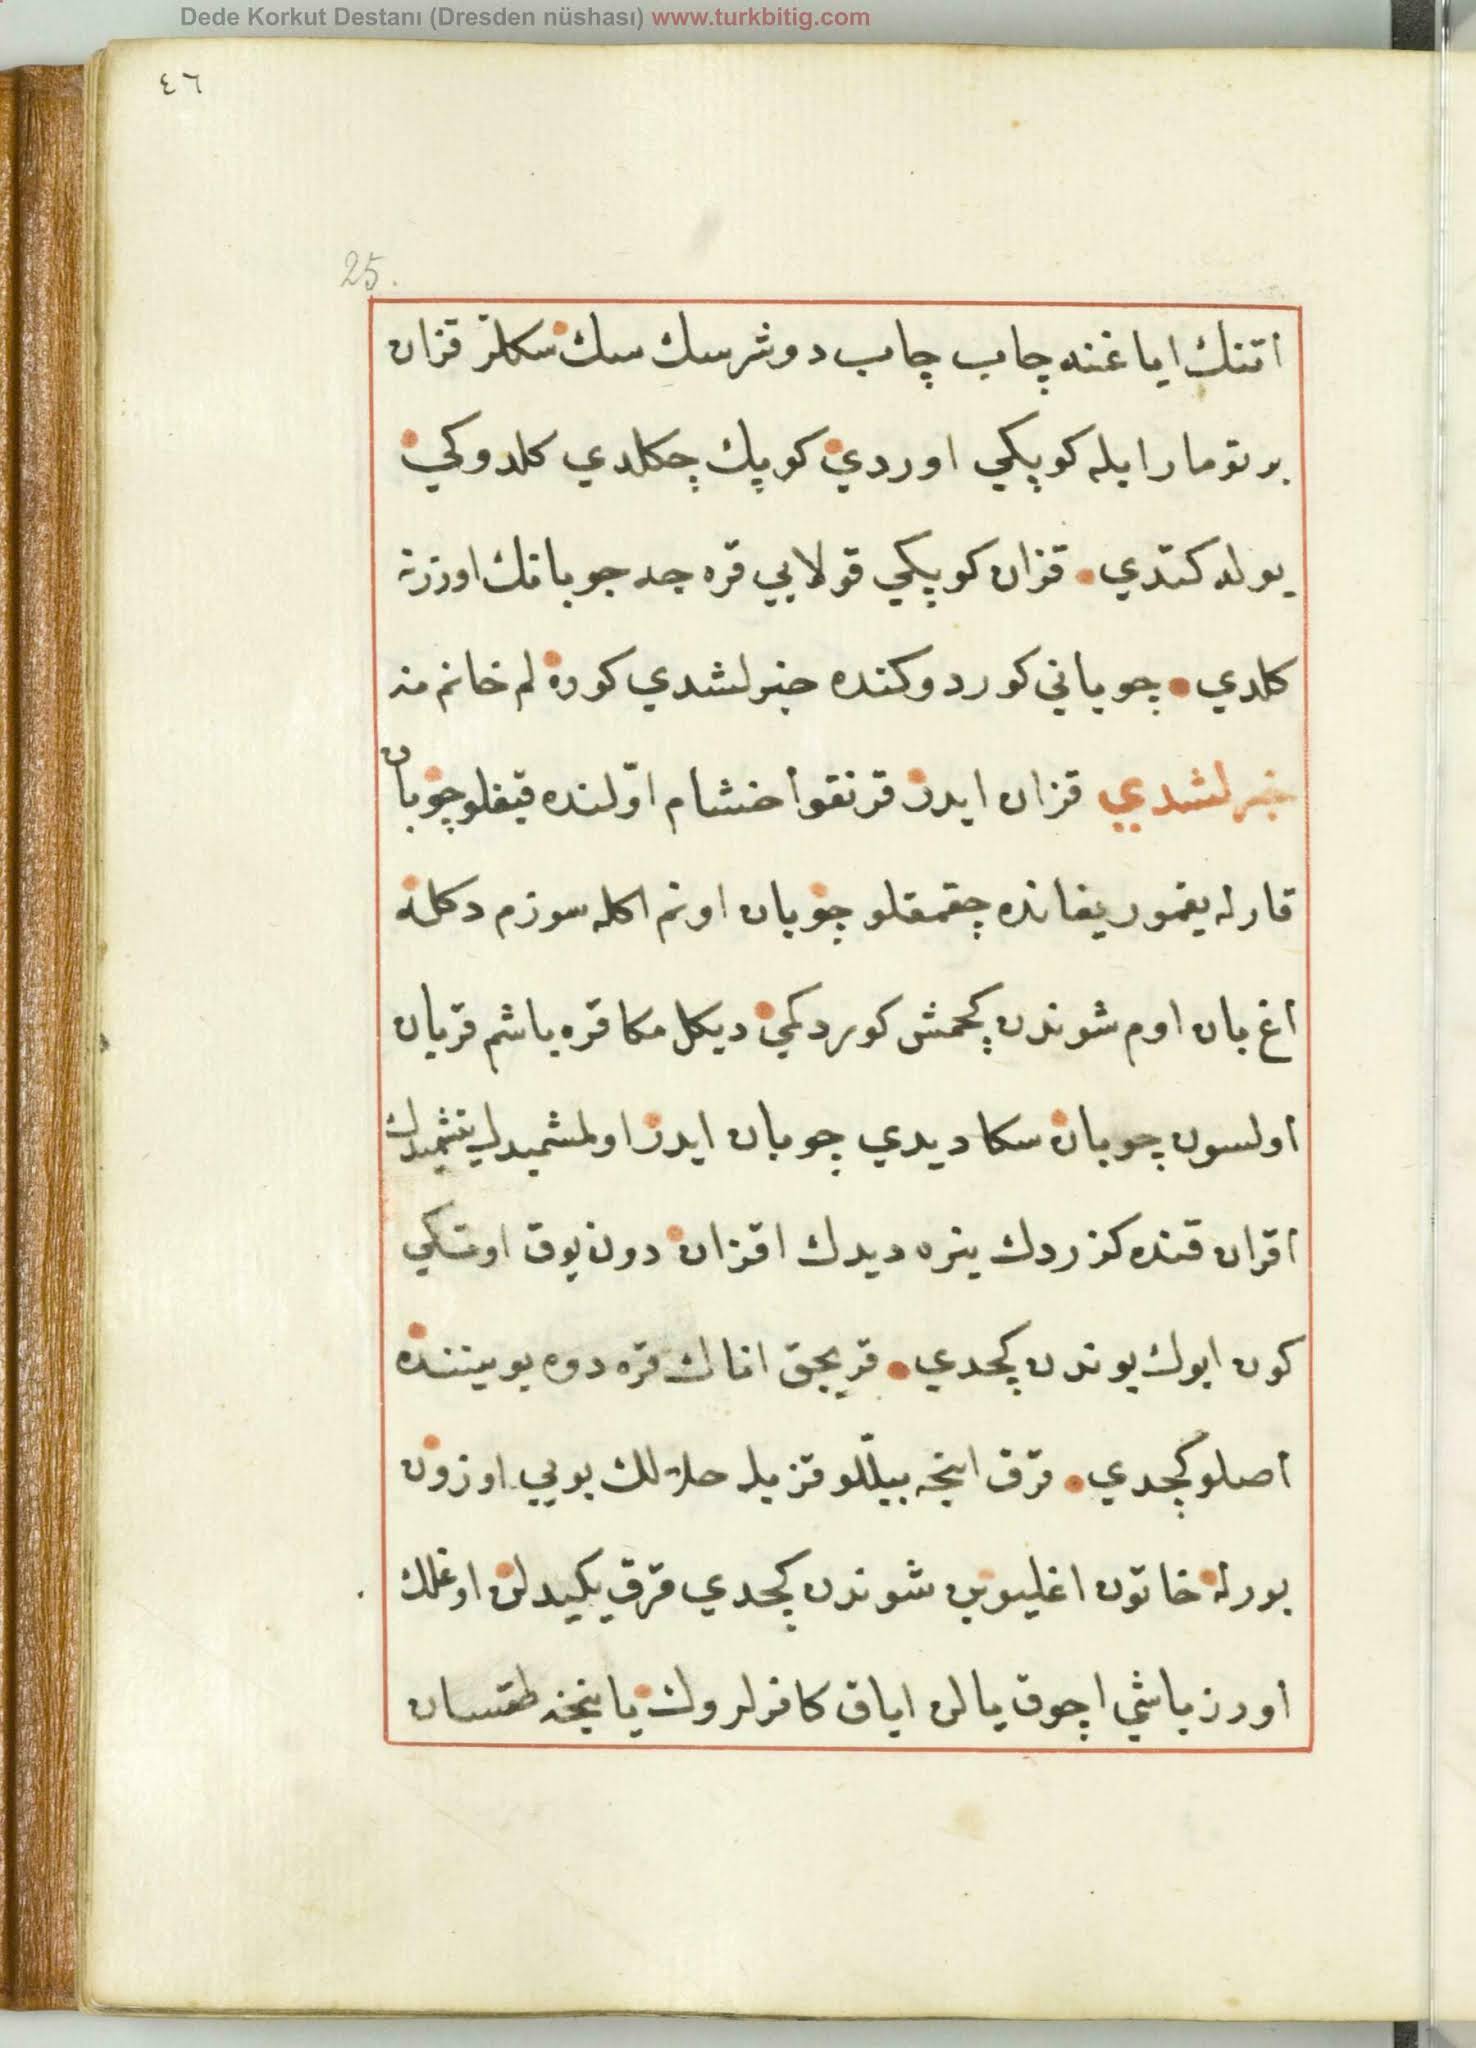 Dede Korkut Destanı (Dresden nüshası) www.turkbitig.com
٤٦
25.
اتنك اياغنه چاپ چاپ دوشر سك سك سكلر قزان
بر تومار ايله كوپكي اوردي كوپك چكلدي كلدوكي
يوله كتدي قزان كوپكي قولايي قره جه جوبانك اوزرنه
كلدي چوباني كوردوكنده خبرلشدي كوره لم خانم نه
خبرلشدي قزان ايدر قرنقو اخشام اوّلنده قيغلو چوبان
قارله يغمور يغانده چقمقلو چوبان اونم اكله سوزم دكله
اغ بان اوم شوندن كچمش كوردكمي ديكل مكا قره باشم قربان
اولسون چوبان سكا ديدي چوبان ايدر اولمشميدك يتمشميدك
اقزان قنده كزردك ينره ديدك اقزان دون يوق اوتكي
كون ايوك بوندن كچدي قريجق اناك قره دوه بويننده
اصلو كچدي قرق اينجه بيللو قزيله حلالك بويي اوزون
بورله خاتون اغليوبن شوندن كچدي قرق يكيدلن اوغلك
اورز باشي اچوق يالن اياق كافرلروك يانجه طقسان